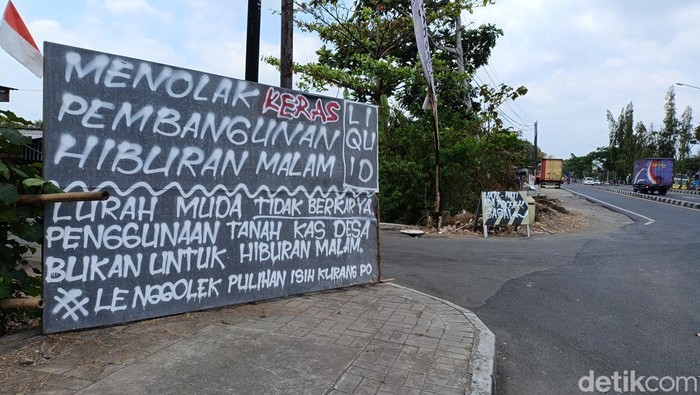 MENOLAK KERAS
PEMBANGUNAN
HIBURAN MALAM
LIQUID
LURAH MUDA TIDAK BERKARYA
PENGGUNAAN TANAH KAS DESA
BUKAN UNTUK HIBURAN MALAM.
#LENGGOLEK PULIHAN ISIH KURANG PO
detikcom